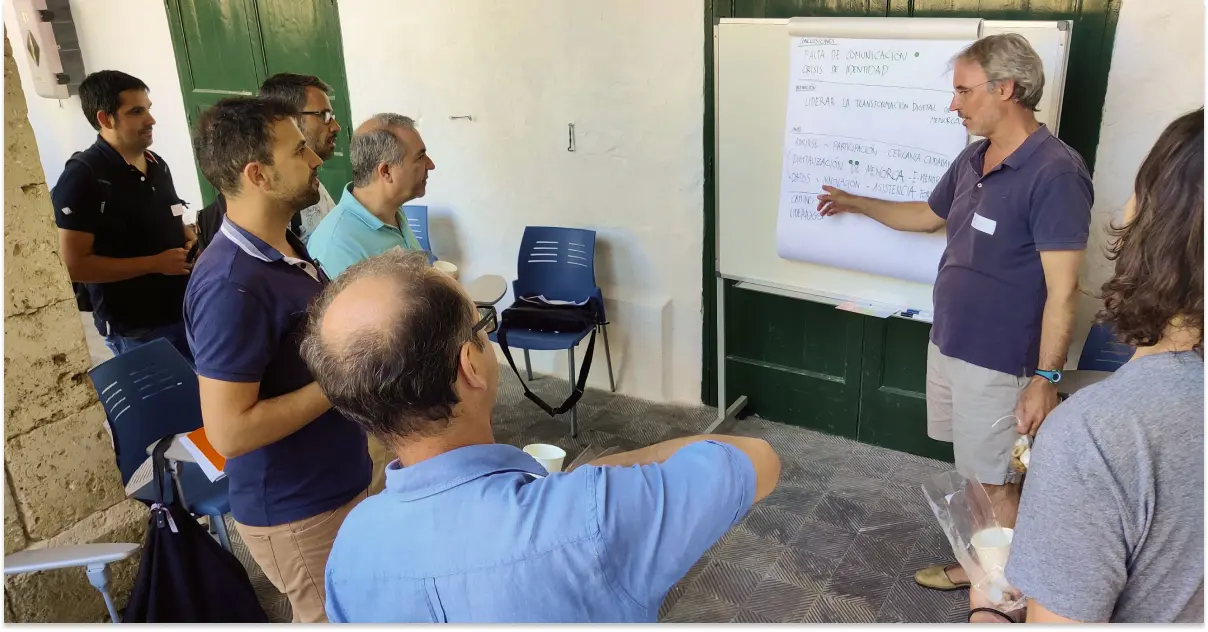 CONCLUSIONES
FALTA DE COMUNICACIÓN
CRISIS DE IDENTIDAD
LIDERAR LA TRANSFORMACION DIGITAL DE
MENORCA
PARTICIPACIÓN CERCANIA CIUDADA
DIGITALIZACIÓN MENORCA
DATOS - INNOVACIÓN - ASISTENCIA
LIDERAZGO